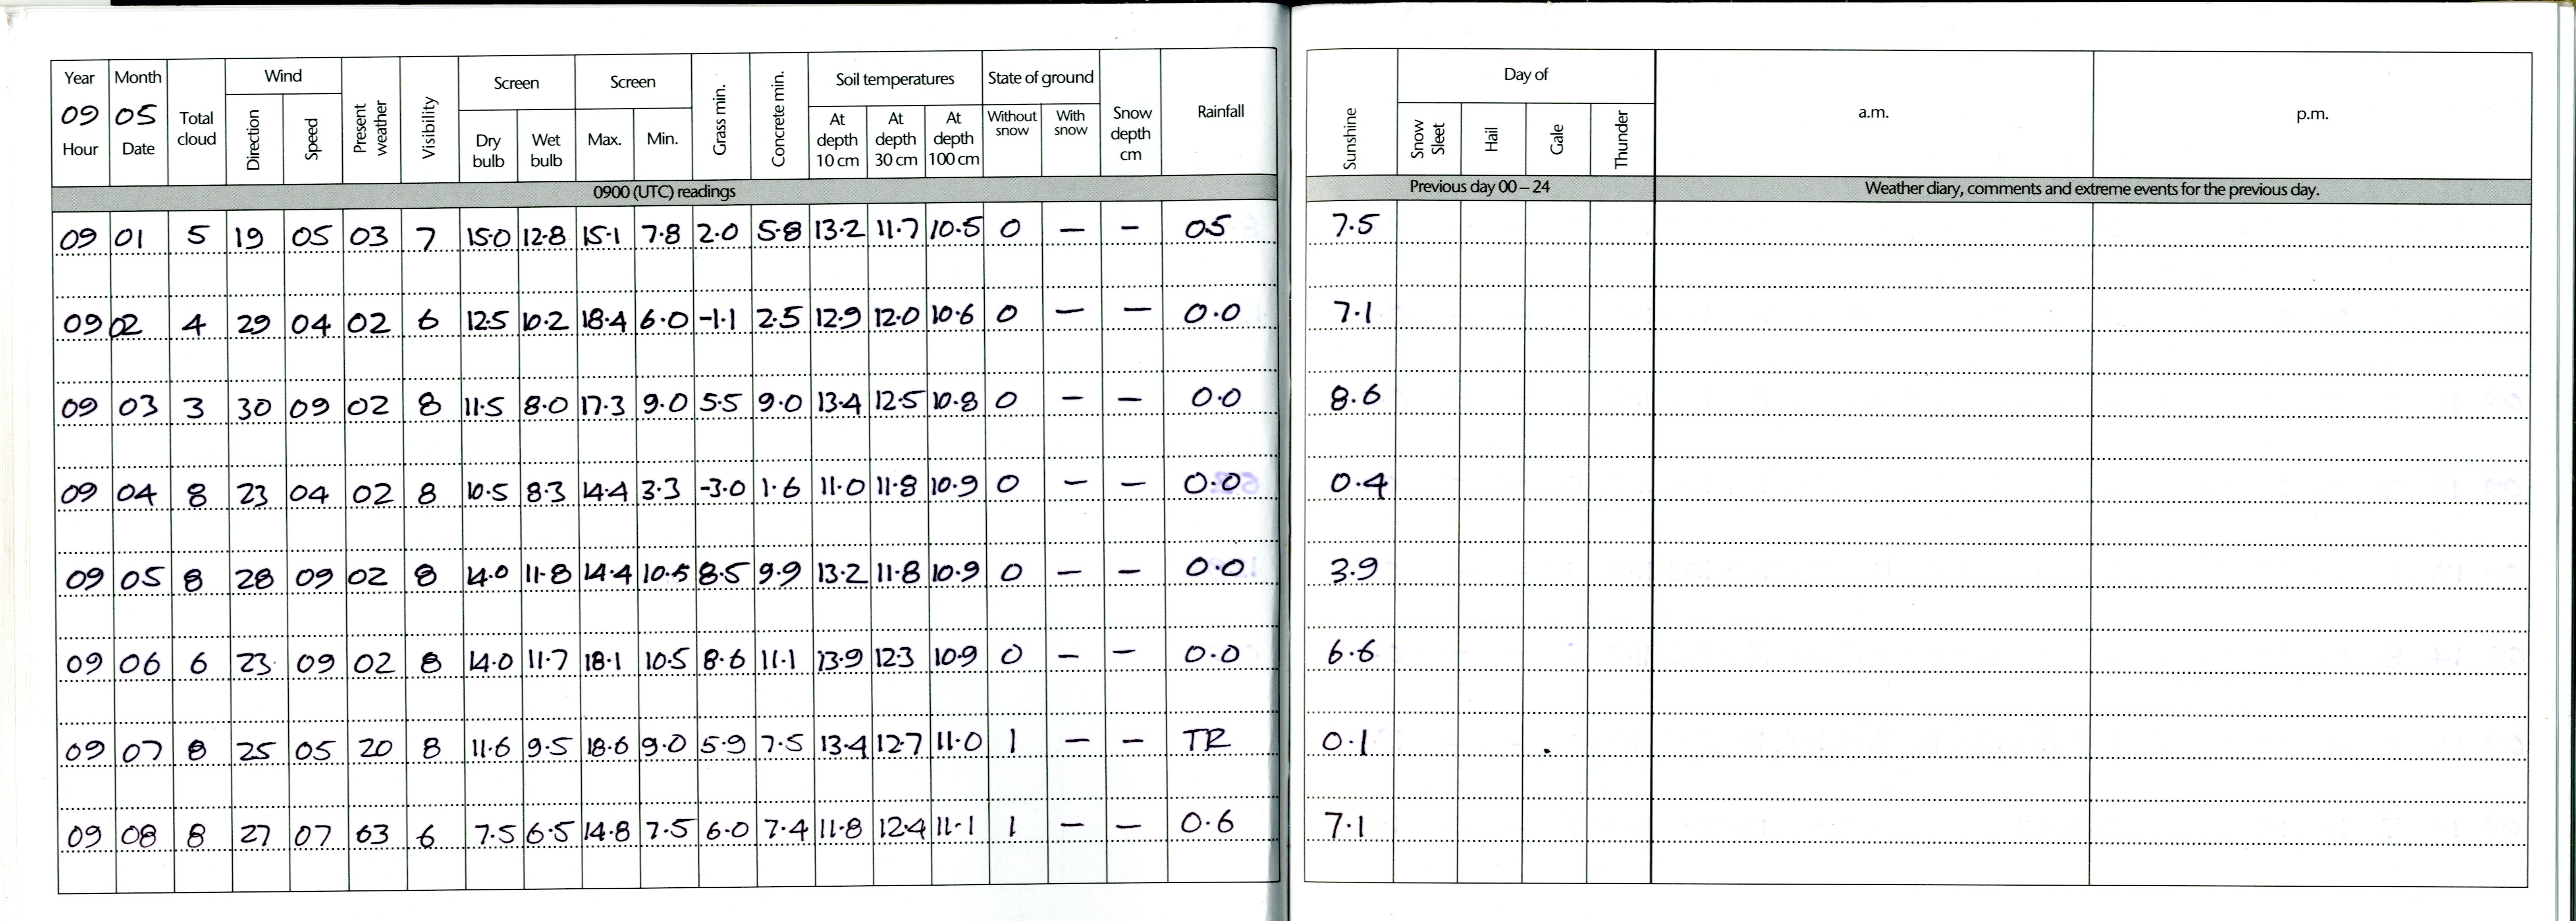 Year Month Total cloud Wind Present weather Visibility Screen Screen Grass min. Concrete min. Soil temperatures State of ground Snow depth cm Rainfall Sunshine Day of a.m. p.m.
09 05 Direction Speed Dry bulb Wet bulb Max. Min. At depth 10 cm At depth 30 cm At depth 100 cm Without snow With snow Snow Sleet Hail Gale Thunder
Hour Date
0900 (UTC) readings Previous day 00 – 24 Weather diary, comments and extreme events for the previous day.
09 01 5 19 05 03 7 15.0 12.8 15.1 7.8 2.0 5.8 13.2 11.7 10.5 0 — — 0.5 7.5
09 02 4 29 04 02 6 12.5 10.2 18.4 6.0 -1.1 2.5 12.9 12.0 10.6 0 — — 0.0 7.1
09 03 3 30 09 02 8 11.5 8.0 17.3 9.0 5.5 9.0 13.4 12.5 10.8 0 — — 0.0 8.6
09 04 8 23 04 02 8 10.5 8.3 14.4 3.3 -3.0 1.6 11.0 11.8 10.9 0 — — 0.0 0.4
09 05 8 28 09 02 8 14.0 11.8 14.4 10.5 8.5 9.9 13.2 11.8 10.9 0 — — 0.0 3.9
09 06 6 23 09 02 8 14.0 11.7 18.1 10.5 8.6 11.1 13.9 12.3 10.9 0 — — 0.0 6.6
09 07 8 25 05 20 8 11.6 9.5 18.6 9.0 5.9 7.5 13.4 12.7 11.0 1 — — TR 0.1
09 08 8 27 07 63 6 7.5 6.5 14.8 7.5 6.0 7.4 11.8 12.4 11.1 1 — — 0.6 7.1